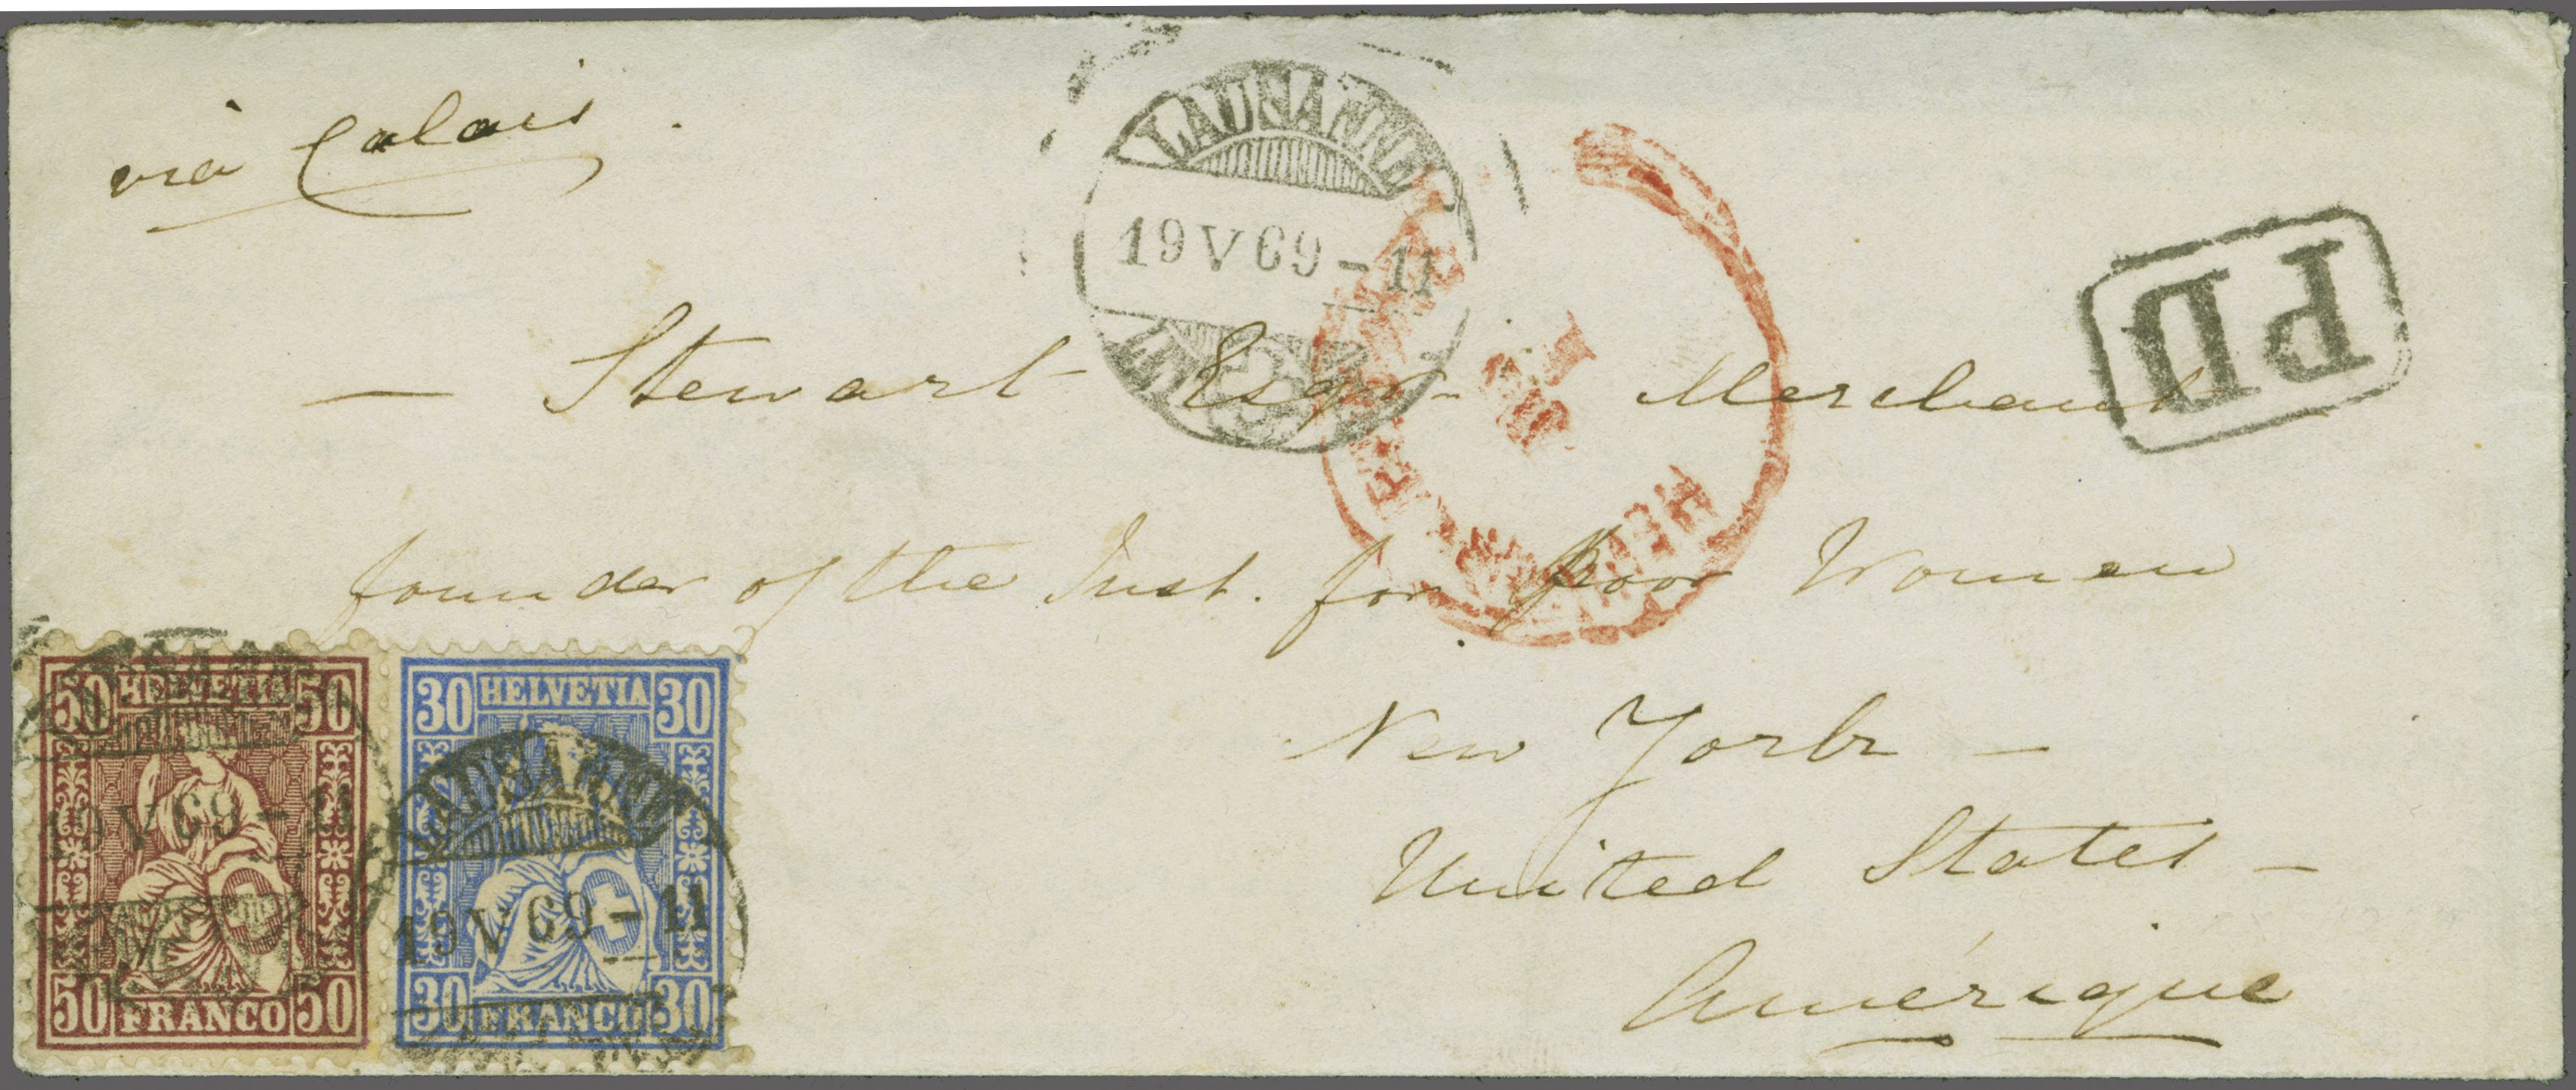 via Calais
LAUSANNE
19 V 69 - 11
PD
— Stewart Esqr. Merchant
founder of the Inst. for poor Women
New York —
United States —
Amérique
50 HELVETIA 50
19 V 69 - 11
50 FRANCO 50
30 HELVETIA 30
LAUSANNE
19 V 69 - 11
30 FRANCO 30